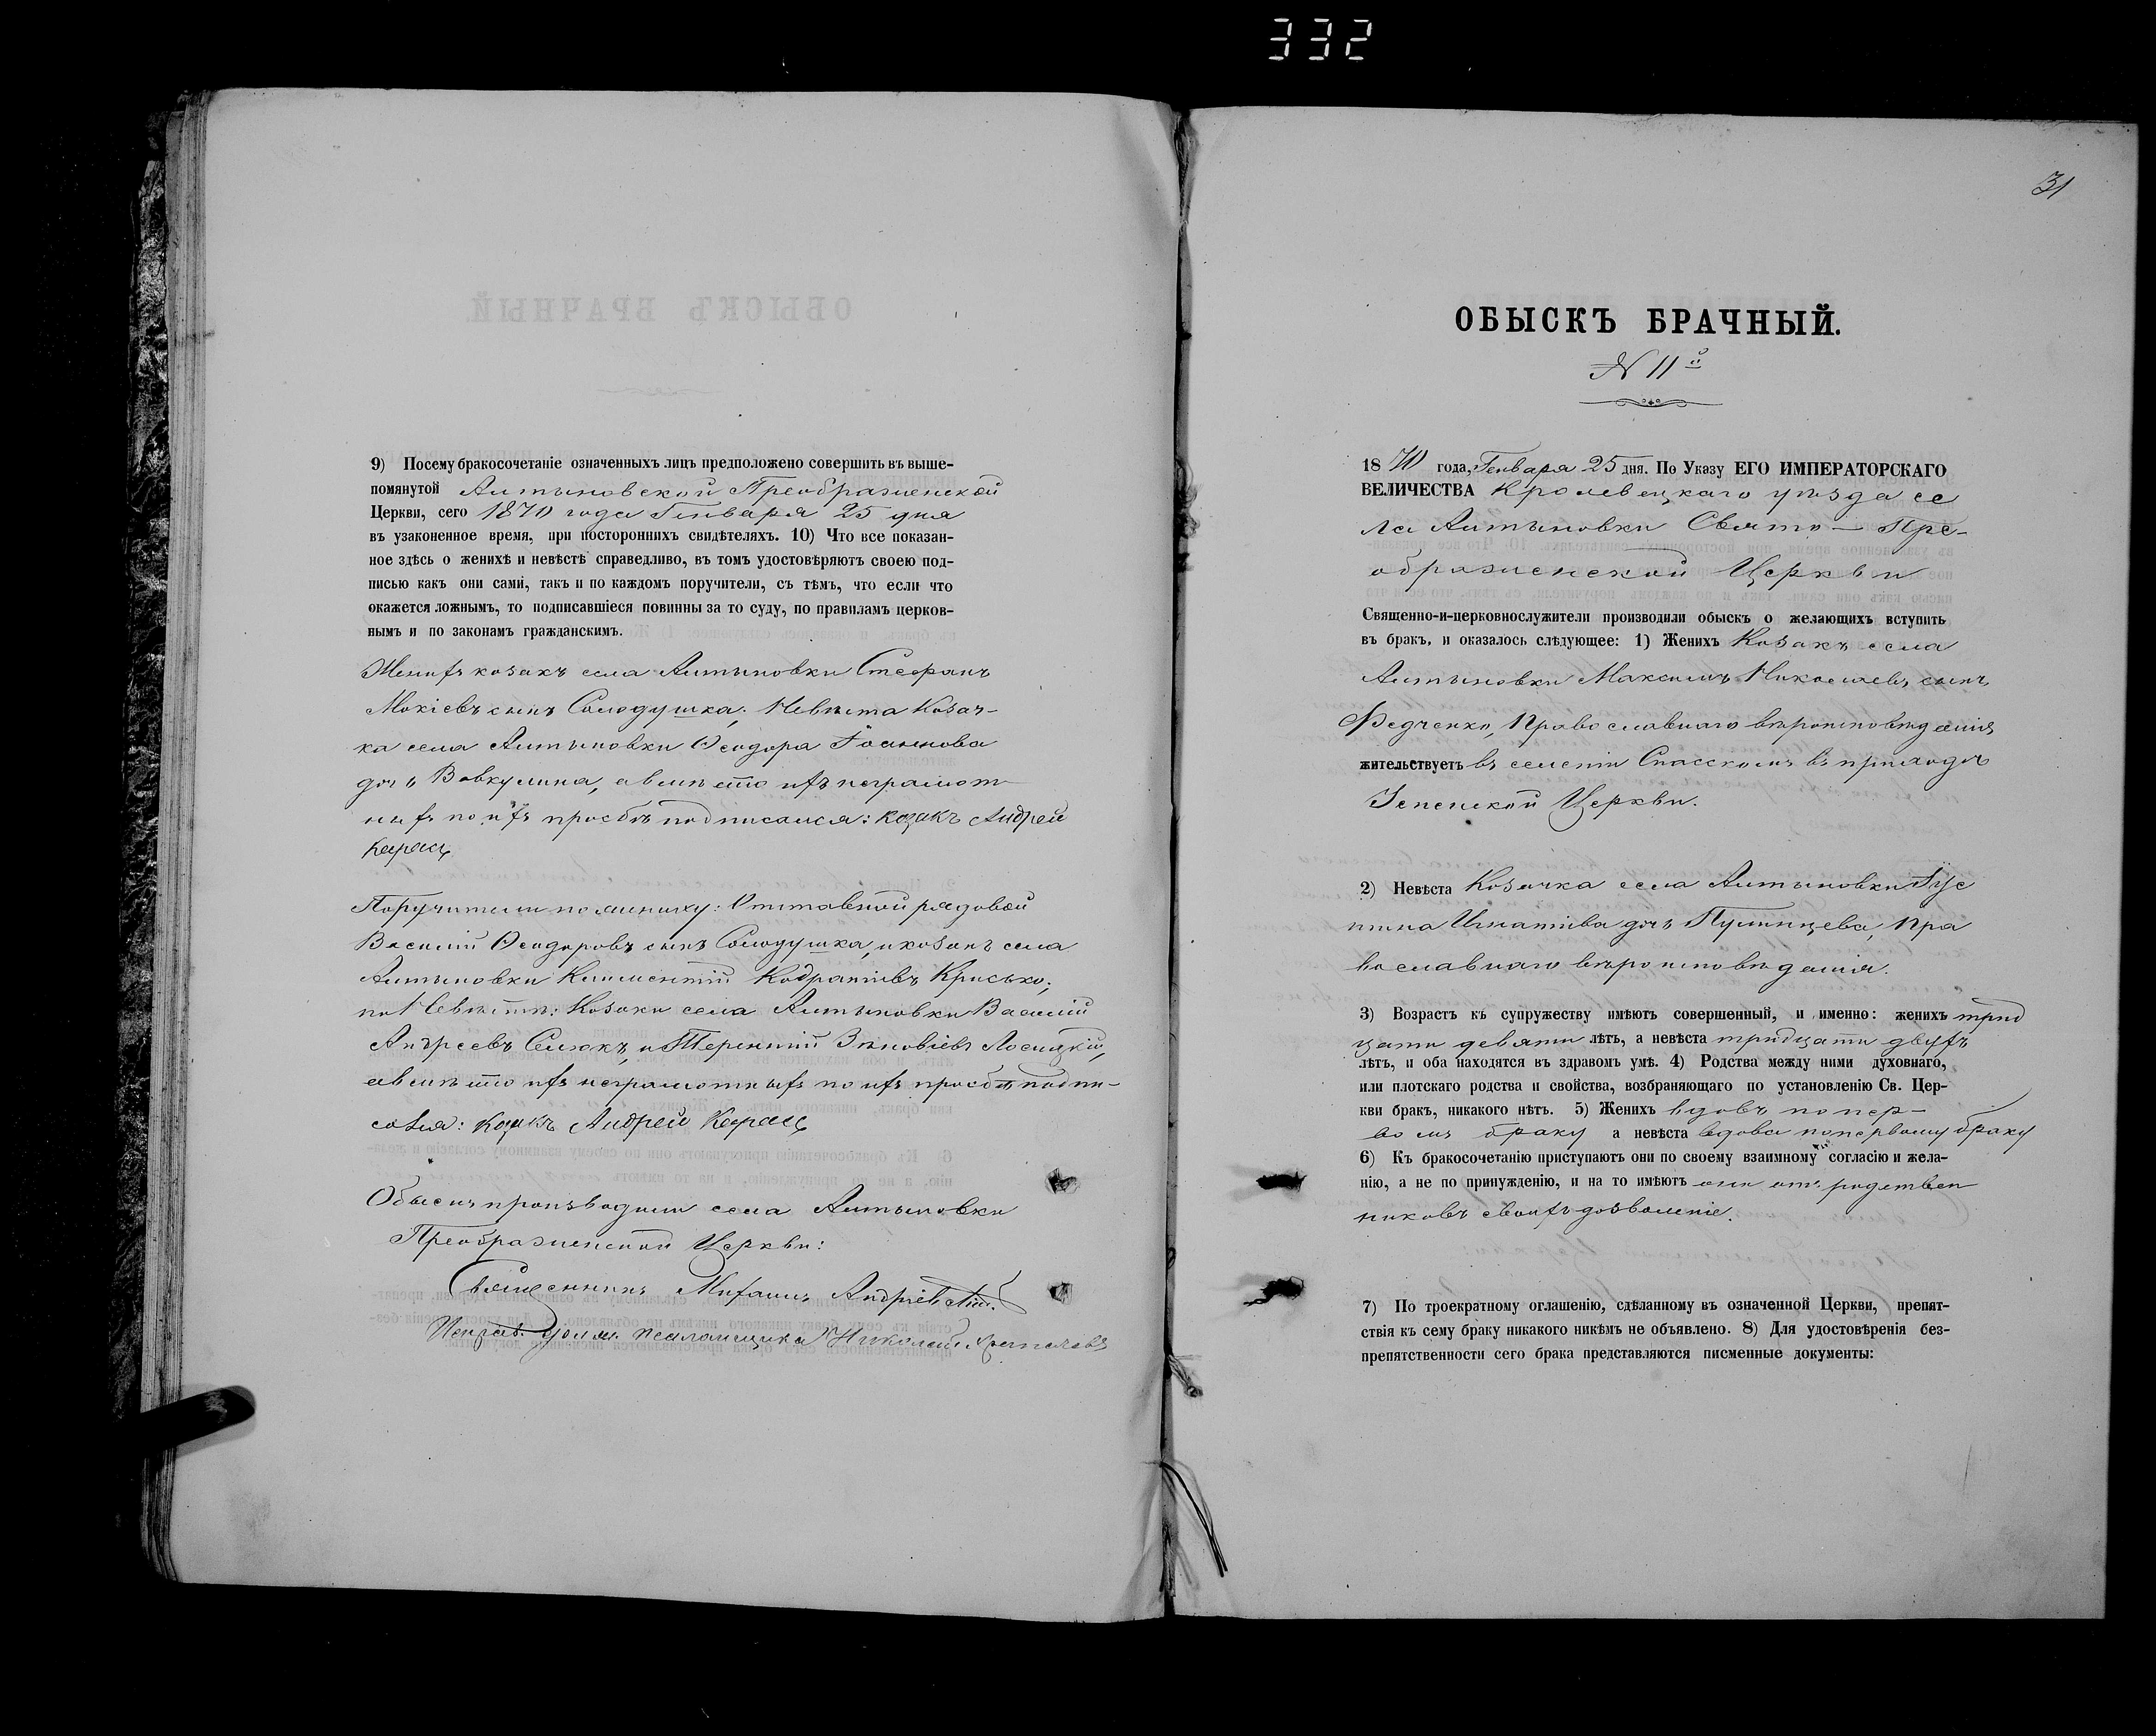 332
9) Посему бракосочетаніе означенныхъ лицъ предположено совершить въ выше-
помянутой Алтыновской Преображенской
Церкви, сего 1870 года Генваря 25 дня
въ узаконенное время, при постороннихъ свидѣтеляхъ. 10) Что все показан-
ное здѣсь о женихѣ и невѣстѣ справедливо, въ томъ удостовѣряютъ своею под-
писью какъ они самі, такъ и по каждомъ поручители, съ тѣмъ, что если что
окажется ложнымъ, то подписавшіеся повинны за то суду, по правиламъ церков-
нымъ и по законамъ гражданскимъ.
Женихъ козакъ села Алтыновки Стефанъ
Мокіевъ сынъ Солодушка; Невѣста Козач-
ка села Алтыновки Ѳеодора Іоаннова
дочь Вовкулина, а вмѣсто ихъ неграмот-
ныхъ по ихъ просбѣ подписался: козакъ Андрей
Карась
Поручители по женику: Отставной рядовой
Василій Ѳеодоровъ сынъ Солодушка, и козакъ села
Алтыновки Климентій Кодратіевъ Крисько;
по Невѣсте: Козаки села Алтыновки Василій
Андреевъ Селюкъ, и Терентій Зѣновіевъ Лосицкій,
а вмѣсто ихъ неграмотныхъ по ихъ просбѣ подпи-
сался: козакъ Андрей Карась
Обыскъ производили села Алтыновки
Преображенской Церкви:
Священникъ Михаилъ Андріев
Исправ. долж. псаломщика Николай
31
ОБЫСКЪ БРАЧНЫЙ.
N 11й
1870 года, Генваря 25 дня. По Указу ЕГО ИМПЕРАТОРСКАГО
ВЕЛИЧЕСТВА Кролевецкаго уѣзда се
ла Алтыновки Свято — Пре-
ображенской Церкви
Священно-и-церковнослужители производили обыскъ о желающихъ вступить
въ бракъ, и оказалось слѣдующее: 1) Женихъ Козакъ села
Алтыновки Максимъ Николаевъ сынъ
Федченко, Православнаго вѣроисповѣданія
жительствуетъ въ селеніи Спасскомъ въ приходѣ
Успенской Церкви.
2) Невѣста Козачка села Алтыновки Іус
тина Игнатіева дочь Пустынцева, Пра
вославнаго вѣроисповѣданія.
3) Возрастъ къ супружеству имѣютъ совершенный, и именно: женихъ трид
цати девяти лѣтъ, а невѣста тридцати двухъ
лѣтъ, и оба находятся въ здравомъ умѣ. 4) Родства между ними духовнаго,
или плотскаго родства и свойства, возбраняющаго по установленію Св. Цер-
кви бракъ, никакого нѣтъ. 5) Женихъ вдовъ по пер-
вомъ браку а невѣста вдова по первому браку
6) Къ бракосочетанію приступаютъ они по своему взаимному согласію и жела-
нію, а не по принужденію, и на то имѣютъ они отъ родствен
никовъ своихъ дозволеніе.
7) По троекратному оглашенію, сдѣланному въ означенной Церкви, препят-
ствія къ сему браку никакого никѣмъ не объявлено. 8) Для удостовѣренія без-
препятственности сего брака представляются писменные документы: